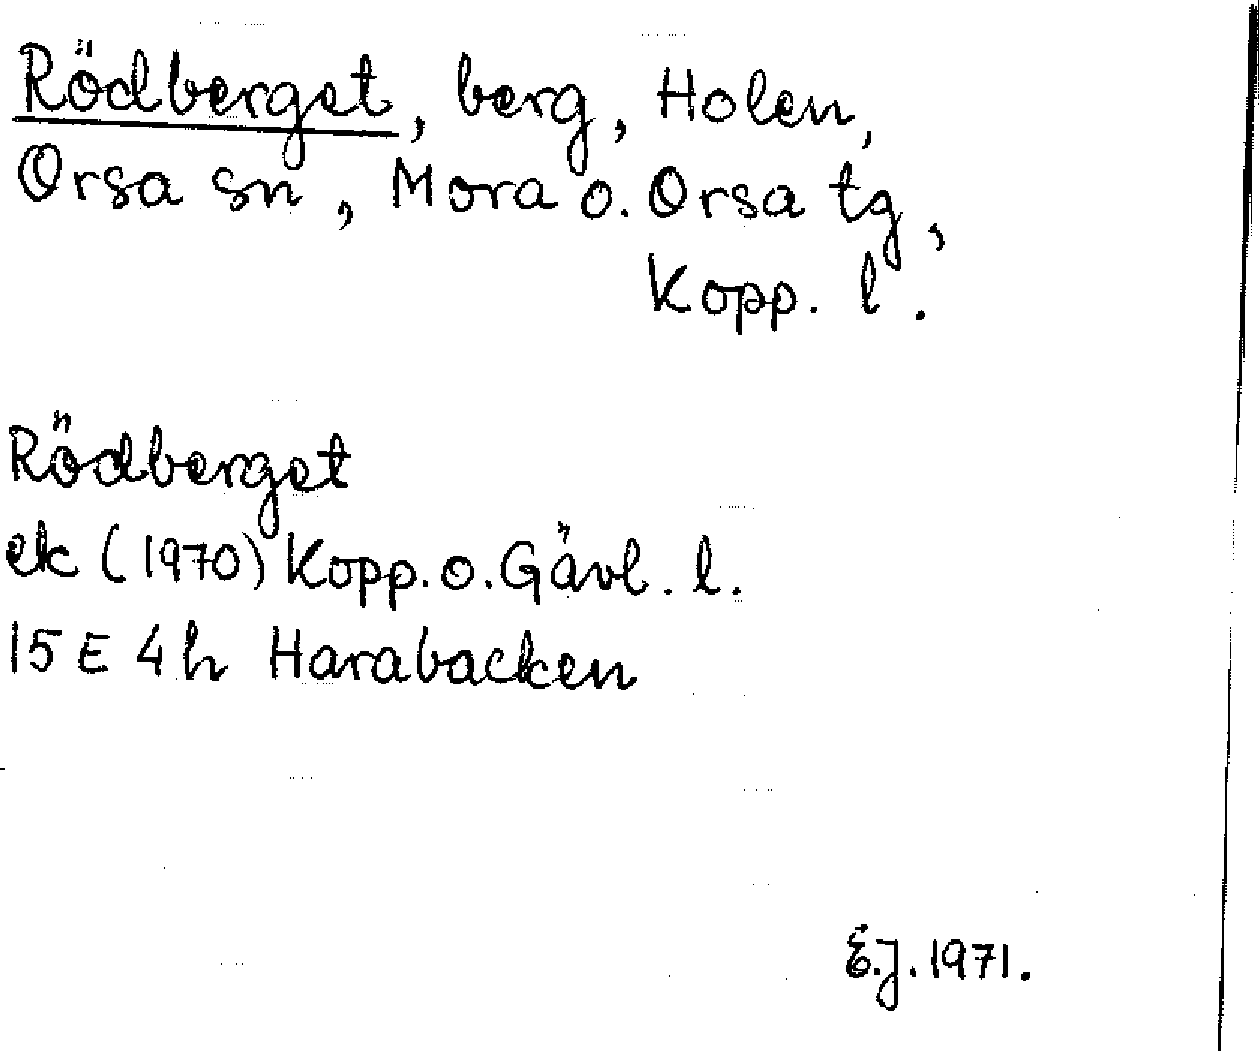 Rödberget, berg, Holen,
Orsa sn, Mora o. Orsa tg,
Kopp. l.
Rödberget
ek (1970) Kopp. o. Gävl. l.
15 E 4 h Harabacken
E.J. 1971.